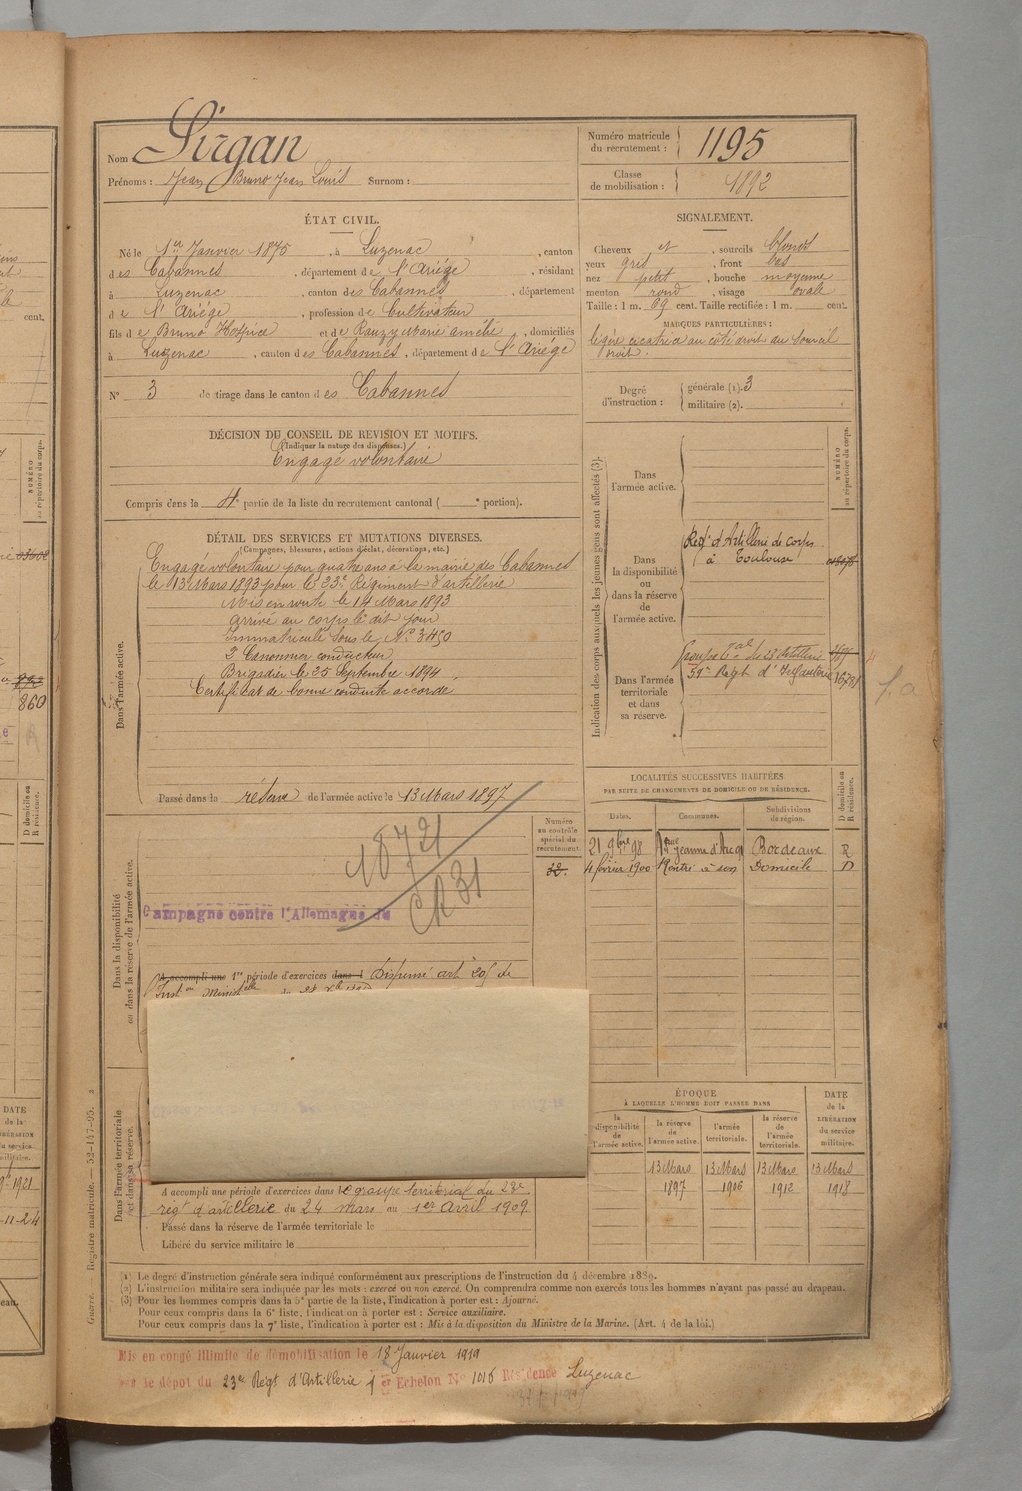 Nom Sirgan
Prénoms : Jean Bruno Jean Louis Surnom :
Numéro matricule du recrutement : 1195
Classe de mobilisation : 1892
ÉTAT CIVIL.
Né le 1er Janvier 1875, à Luzenac, canton
des Cabannes, département de l'Ariége, résidant
à Luzenac, canton des Cabannes, département
de l'Ariége, profession de Cultivateur
fils de Bruno Hospice et de Rauzy Marie amélie, domiciliés
à Luzenac, canton des Cabannes, département de l'Ariége
N° 3 de tirage dans le canton des Cabannes
SIGNALEMENT.
Cheveux et, sourcils blonds
yeux gris, front bas
nez petit, bouche moyenne
menton rond, visage ovale
Taille : 1 m. 69 cent. Taille rectifiée : 1 m. cent.
MARQUES PARTICULIÈRES :
légère cicatrice au côté droit du sourcil
droit.
Degré d'instruction : générale (1). 3
militaire (2).
DÉCISION DU CONSEIL DE REVISION ET MOTIFS.
(Indiquer la nature des dispenses.)
Engagé volontaire
Compris dans la 4e partie de la liste du recrutement cantonal ( e portion).
DÉTAIL DES SERVICES ET MUTATIONS DIVERSES.
(Campagnes, blessures, actions d'éclat, décorations, etc.)
Dans l'armée active.
Engagé volontaire pour quatre ans à la mairie des Cabannes
le 13 Mars 1893 pour le 23e Régiment d'artillerie
Mis en route le 14 Mars 1893
arrivé au corps le dit jour
Immatriculé sous le N° 3450
2e Canonnier conducteur
Brigadier le 25 Septembre 1894
Certificat de bonne conduite accordé
Passé dans la réserve de l'armée active le 13 Mars 1897
Indication des corps auxquels les jeunes gens sont affectés (3).
NUMÉRO au répertoire du corps.
Dans l'armée active.
Dans la disponibilité ou dans la réserve de l'armée active.
Regt d'Artillerie de corps
à Toulouse
Dans l'armée territoriale et dans sa réserve.
groupe tal du 23 Artillerie
Regt d'Infanterie
f.a
LOCALITÉS SUCCESSIVES HABITÉES
PAR SUITE DE CHANGEMENTS DE DOMICILE OU DE RÉSIDENCE.
Dates. Communes. Subdivisions de région. D domicile ou R résidence.
21 9bre 98 Jeanne d'Arc Bordeaux R
4 février 1900 Rentré à son Domicile D
Dans la disponibilité ou dans la réserve de l'armée active.
Numéro au contrôle spécial du recrutement.
32.
18721
CR 31
Campagne contre l'Allemagne du
A accompli une 1re période d'exercices dans l Dispensé art 205 de
l'Inston Ministelle du
Dans l'armée territoriale et dans sa réserve.
A accompli une période d'exercices dans le groupe territorial du 23e
régt d'artillerie du 24 mars au 1er avril 1909
Passé dans la réserve de l'armée territoriale le
Libéré du service militaire le
ÉPOQUE
À LAQUELLE L'HOMME DOIT PASSER DANS
la disponibilité de l'armée active. la réserve de l'armée active. l'armée territoriale. la réserve de l'armée territoriale.
DATE de la LIBÉRATION du service militaire.
13 Mars 13 Mars 13 Mars 13 Mars
1897 1906 1912 1918
(1) Le degré d'instruction générale sera indiqué conformément aux prescriptions de l'instruction du 4 décembre 1889.
(2) L'instruction militaire sera indiquée par les mots : exercé ou non exercé. On comprendra comme non exercés tous les hommes n'ayant pas passé au drapeau.
(3) Pour les hommes compris dans la 5e partie de la liste, l'indication à porter est : Ajourné.
Pour ceux compris dans la 6e liste, l'indication à porter est : Service auxiliaire.
Pour ceux compris dans la 7e liste, l'indication à porter est : Mis à la disposition du Ministre de la Marine. (Art. 4 de la loi.)
Guerre. Registre matricule. — 52-147-95.
Mis en congé illimité de démobilisation le 18 Janvier 1919
par le dépôt du 23e Régt d'Artillerie 1er Echelon N° 1016 Résidence Luzenac
860
NUMÉRO au répertoire du corps.
D domicile ou R résidence.
DATE de la LIBÉRATION du service militaire.